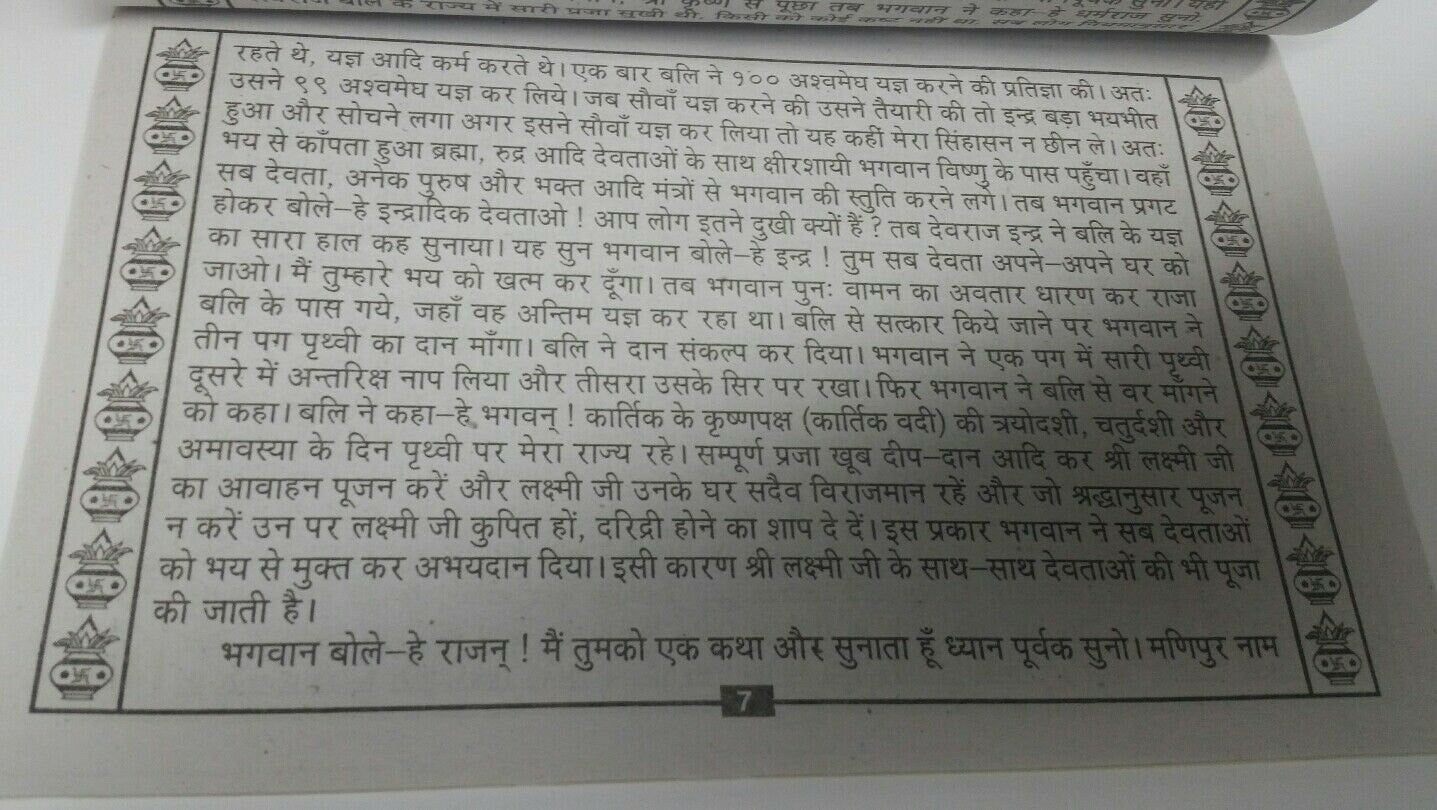 से पूछा तब भगवान ने कहा- हे धर्मराज सुनो,
के राज्य में सारी प्रजा सुखी थी, किसी को कोई कष्ट नहीं था, सब लोग
रहते थे, यज्ञ आदि कर्म करते थे। एक बार बलि ने १०० अश्वमेघ यज्ञ करने की प्रतिज्ञा की। अतः
उसने ९९ अश्वमेघ यज्ञ कर लिये। जब सौवाँ यज्ञ करने की उसने तैयारी की तो इन्द्र बड़ा भयभीत
हुआ और सोचने लगा अगर इसने सौवाँ यज्ञ कर लिया तो यह कहीं मेरा सिंहासन न छीन ले। अतः
भय से काँपता हुआ ब्रह्मा, रुद्र आदि देवताओं के साथ क्षीरशायी भगवान विष्णु के पास पहुँचा। वहाँ
सब देवता, अनेक पुरुष और भक्त आदि मंत्रों से भगवान की स्तुति करने लगे। तब भगवान प्रगट
होकर बोले-हे इन्द्रादिक देवताओ ! आप लोग इतने दुखी क्यों हैं ? तब देवराज इन्द्र ने बलि के यज्ञ
का सारा हाल कह सुनाया। यह सुन भगवान बोले-हे इन्द्र ! तुम सब देवता अपने-अपने घर को
जाओ। मैं तुम्हारे भय को खत्म कर दूँगा। तब भगवान पुनः वामन का अवतार धारण कर राजा
बलि के पास गये, जहाँ वह अन्तिम यज्ञ कर रहा था। बलि से सत्कार किये जाने पर भगवान ने
तीन पग पृथ्वी का दान माँगा। बलि ने दान संकल्प कर दिया। भगवान ने एक पग में सारी पृथ्वी
दूसरे में अन्तरिक्ष नाप लिया और तीसरा उसके सिर पर रखा। फिर भगवान ने बलि से वर माँगने
को कहा। बलि ने कहा-हे भगवन् ! कार्तिक के कृष्णपक्ष (कार्तिक वदी) की त्रयोदशी, चतुर्दशी और
अमावस्या के दिन पृथ्वी पर मेरा राज्य रहे। सम्पूर्ण प्रजा खूब दीप-दान आदि कर श्री लक्ष्मी जी
का आवाहन पूजन करें और लक्ष्मी जी उनके घर सदैव विराजमान रहें और जो श्रद्धानुसार पूजन
न करें उन पर लक्ष्मी जी कुपित हों, दरिद्री होने का शाप दे दें। इस प्रकार भगवान ने सब देवताओं
को भय से मुक्त कर अभयदान दिया। इसी कारण श्री लक्ष्मी जी के साथ-साथ देवताओं की भी पूजा
की जाती है।
भगवान बोले-हे राजन् ! मैं तुमको एक कथा और सुनाता हूँ ध्यान पूर्वक सुनो। मणिपुर नाम
7